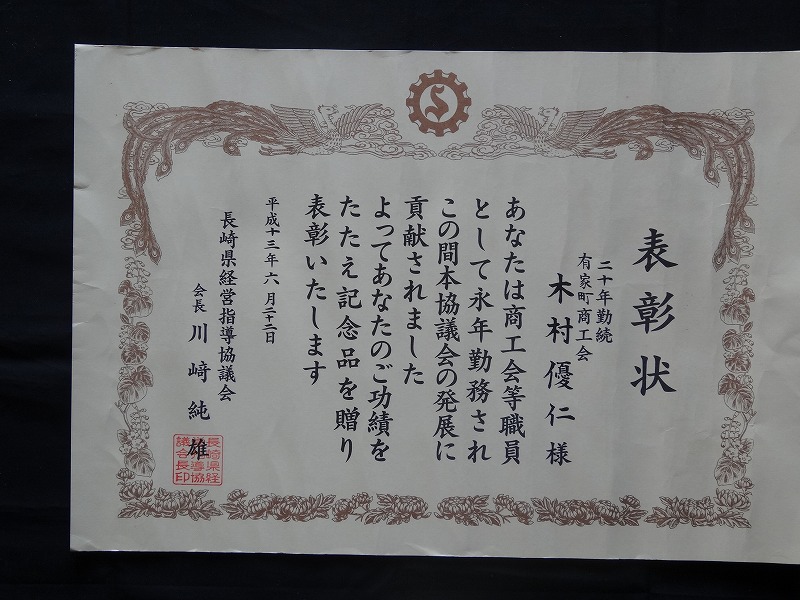 表彰状
二十年勤続
有家町商工会
木村優仁様
あなたは商工会等職員
として永年勤務され
この間本協議会の発展に
貢献されました
よってあなたのご功績を
たたえ記念品を贈り
表彰いたします
平成十三年六月二十二日
長崎県経営指導協議会
会長 川﨑純雄